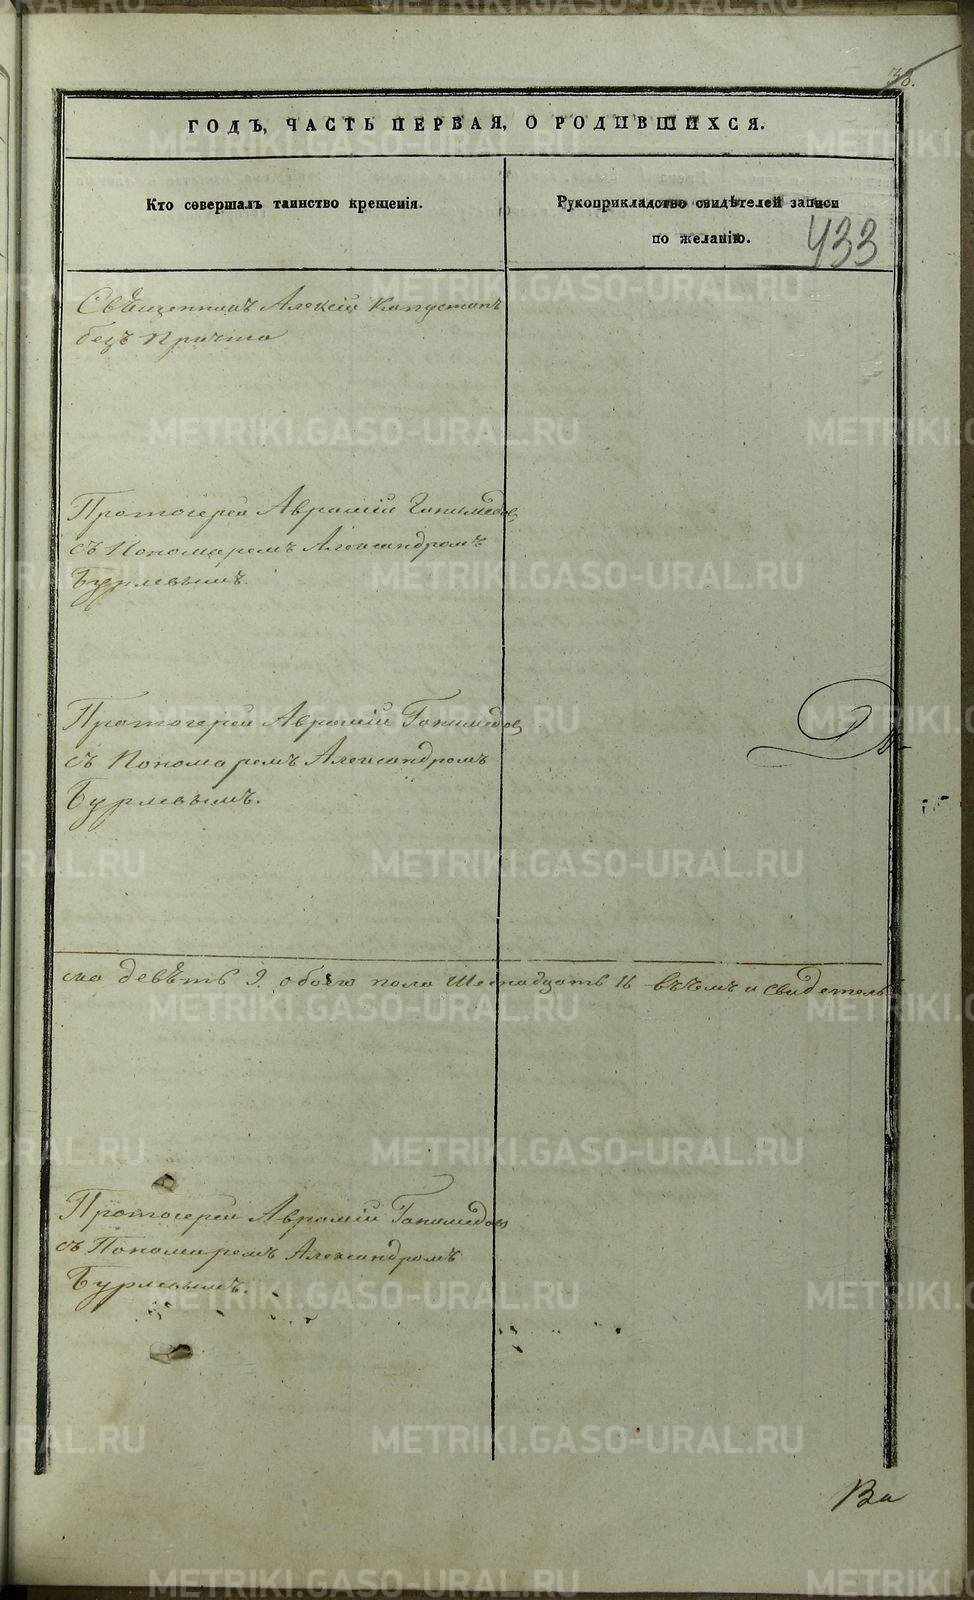 38.
ГОДЪ, ЧАСТЬ ПЕРВАЯ, О РОДИВШИХСЯ.
Кто совершалъ таинство крещенія.
Рукоприкладство свидѣтелей записи
по желанію.
433
Священникъ Алексій Капустинъ
безъ Причта
Протоіерей Аврамій Ганимедов
съ Пономаремъ Александромъ
Бурлевымъ.
Протоіерей Аврамій Ганимедов
съ Пономаремъ Александромъ
Бурлевымъ.
ска девѣть 9. обоего пола Шестнадцать 16 въчемъ и свидетель
Протоіерей Аврамій Ганимедов
съ Пономаремъ Александромъ
Бурлевымъ.
METRIKI.GASO-URAL.RU